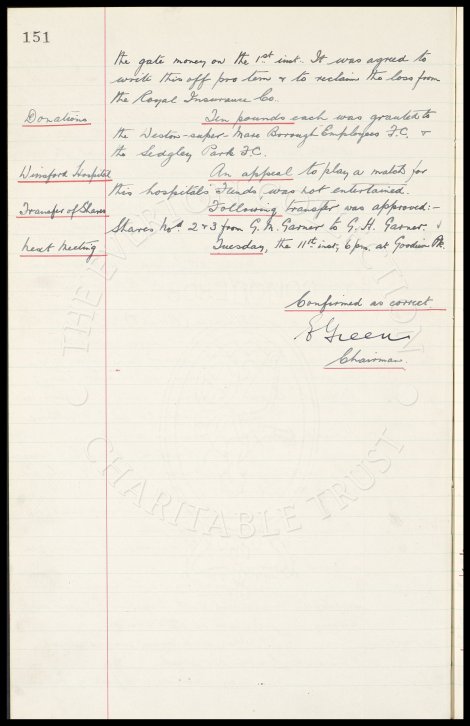 151
the gate money on the 1st inst. It was agreed to
write this off pro tem & to reclaim the loss from
the Royal Insurance Co.
Donations Ten pounds each was granted to
the Weston-super-Mare Borough Employees F.C. &
the Sedgley Park F.C.
Winsford Hospital An appeal to play a match for
this hospitals Funds, was not entertained.
Transfer of Shares Following transfer was approved:-
Shares Nos 2 & 3 from G. M. Garner to G. H. Garner.
Next Meeting Tuesday, the 11th inst, 6 pm. at Goodison Pk.
Confirmed as correct
E Green
Chairman
THE EVERTON COLLECTION
CHARITABLE TRUST